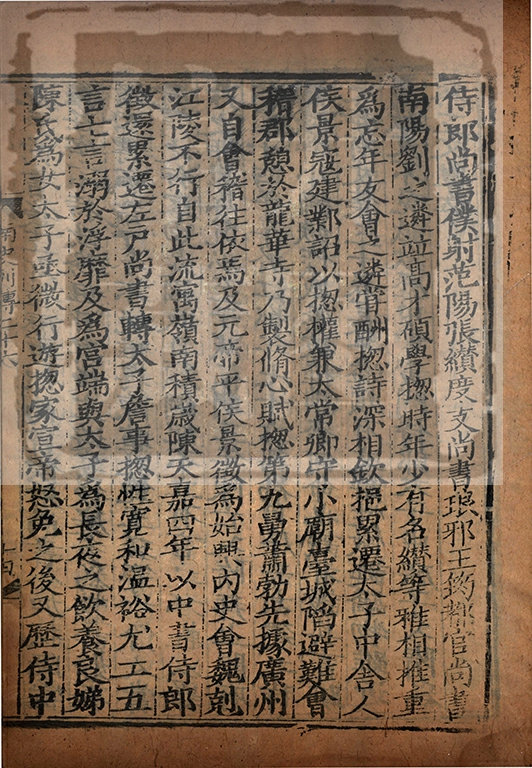 侍郎尚書僕射范陽張纘度支尚書琅邪王筠都官尚書
南陽劉之遴竝髙才碩學揔時年少有名纘等雅相推重
爲忘年友會之遴甞酬揔詩深相欽挹累遷太子中舎人
侯景寇建鄴詔以揔權兼太常卿守小廟臺城陷避難會
稽郡憩於龍華寺乃製脩心賦揔第九舅蕭勃先據廣州
又自會稽往依焉及元帝平侯景徵爲始興内史會魏剋
江陵不行自此流寓嶺南積歳陳天嘉四年以中書侍郎
徵還累遷左戸尚書轉太子詹事揔性寛和温裕尤工五
言七言溺於浮靡及爲宫端與太子爲長夜之飲養良娣
陳氏爲女太子亟微行遊揔家宣帝怒免之後又歴侍中
南史列傳二十六
十四